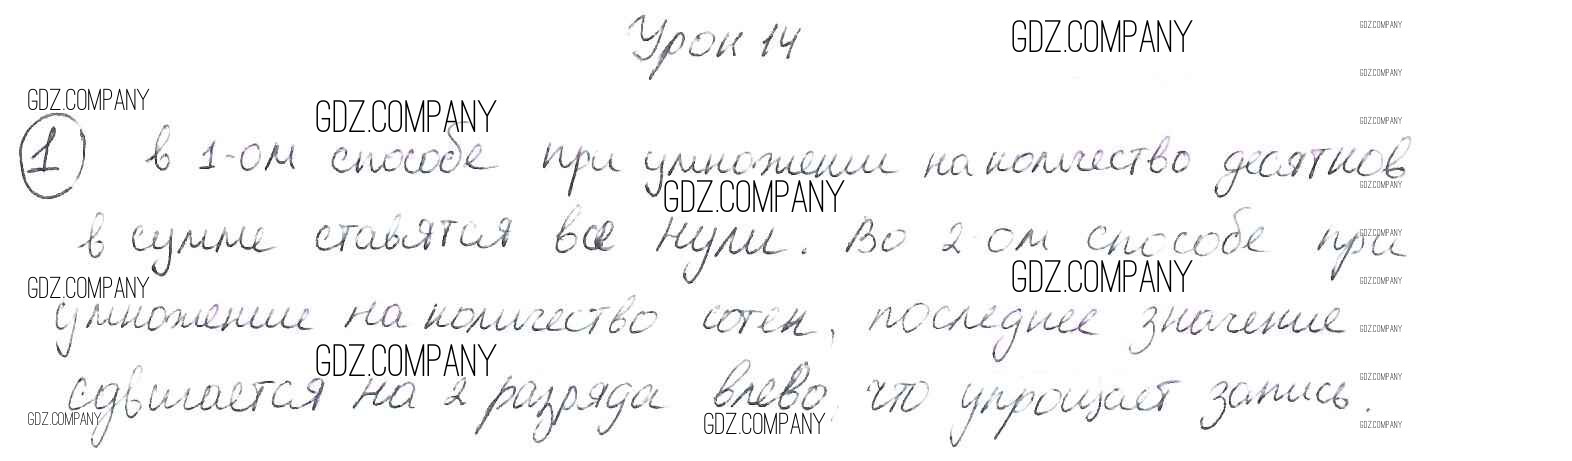 Урок 14
GDZ.COMPANY
GDZ.COMPANY
GDZ.COMPANY
GDZ.COMPANY
GDZ.COMPANY
GDZ.COMPANY
1 в 1-ом способе при умножении на количество десятков
GDZ.COMPANY
GDZ.COMPANY
в сумме ставятся все нули. Во 2-ом способе при
GDZ.COMPANY
GDZ.COMPANY
GDZ.COMPANY
GDZ.COMPANY
умножении на количество сотен, последнее значение
GDZ.COMPANY
GDZ.COMPANY
GDZ.COMPANY
сдвигается на 2 разряда влево, что упрощает запись.
GDZ.COMPANY
GDZ.COMPANY
GDZ.COMPANY